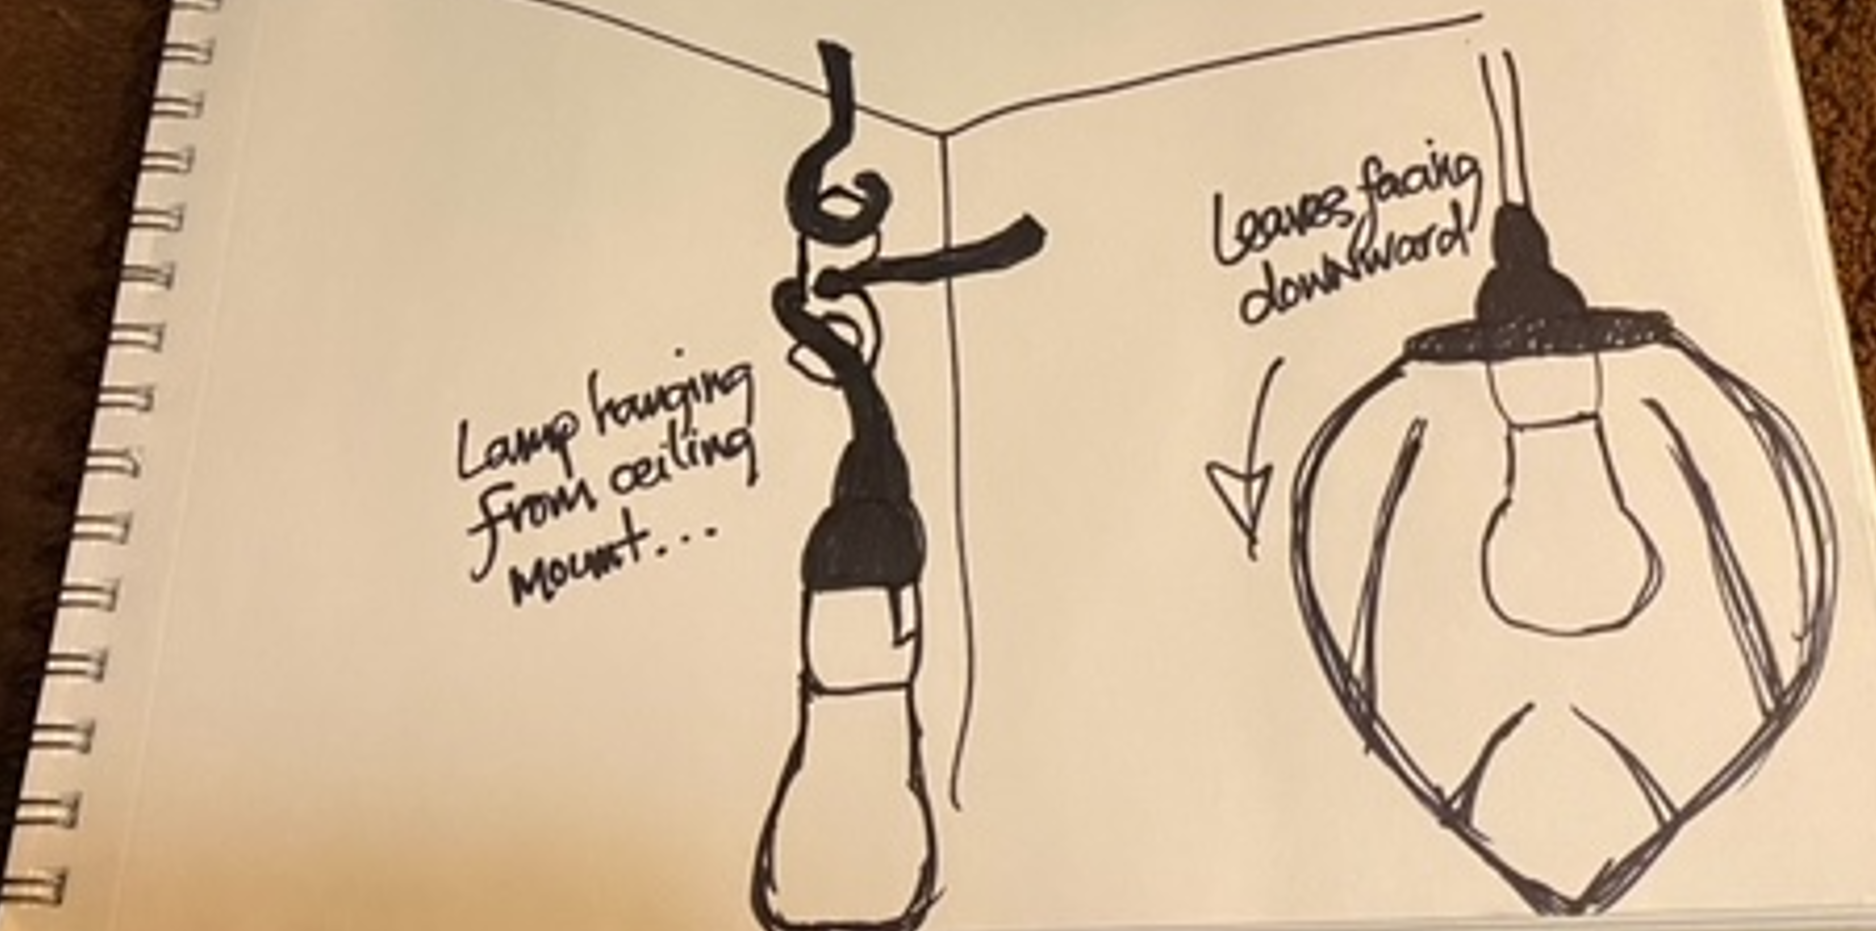 Lamp hanging
from ceiling
mount...
Leaves facing
downward